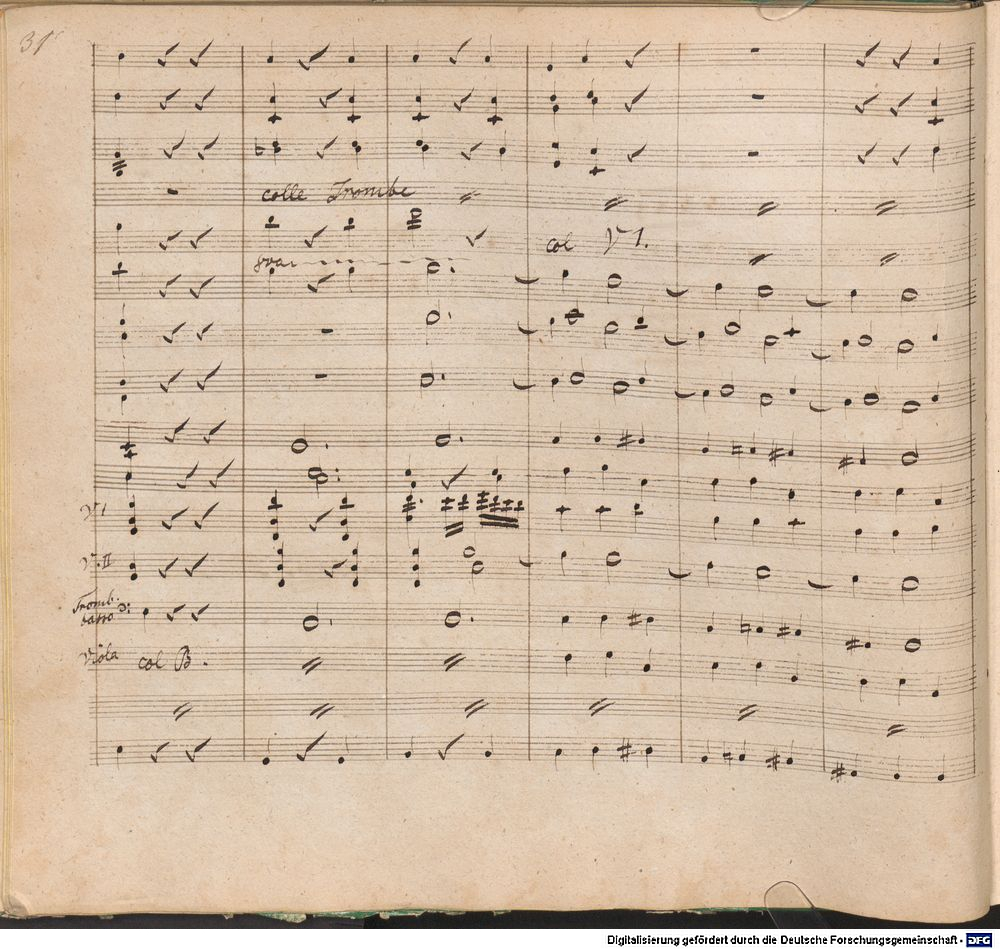 31
colle Trombe
col V 1.
8va
V 1
V. II
Tromb.
basso
Viola col B.
Digitalisierung gefördert durch die Deutsche Forschungsgemeinschaft - DFG